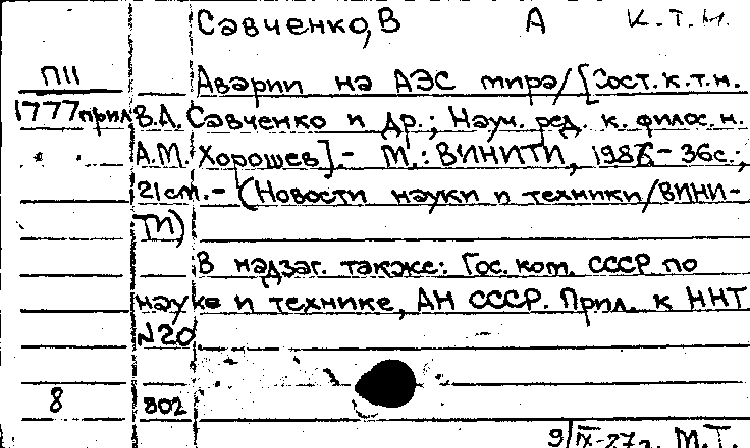 Савченко, В А к.т.н.
П11 Аварии на АЭС мира/[Сост. к.т.н.
1777прил В.А. Савченко и др.; Науч. ред. к. филос. н.
А.М. Хорошев].- М.: ВИНИТИ, 1986-36с.;
21см.-(Новости науки и техники/ВИНИ-
ТИ)
В надзаг. также: Гос. ком. СССР по
науке и технике, АН СССР. Прил. к ННТ
№20
8 802
9/IX-27г. М.Т.